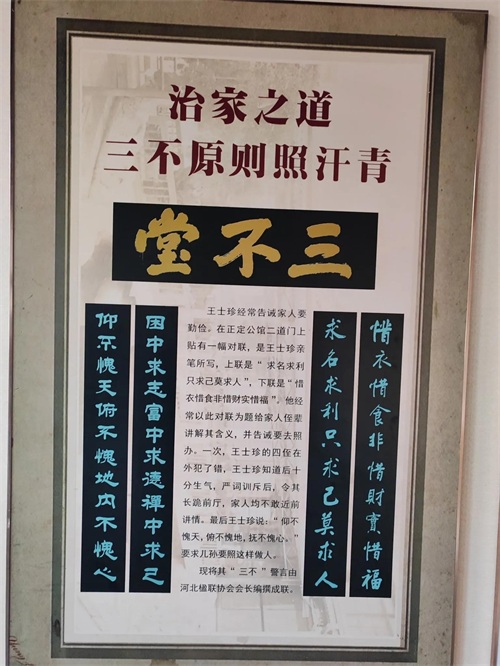 治家之道
三不原则照汗青
三不堂
惜衣惜食非惜財實惜福
求名求利只求己莫求人
王士珍经常告诫家人要
勤俭。在正定公馆二道门上
贴有一幅对联，是王士珍亲
笔所写，上联是“求名求利
只求己莫求人”，下联是“惜
衣惜食非惜财实惜福”。他经
常以此对联为题给家人侄辈
讲解其含义，并告诫要去照
办。一次，王士珍的四侄在
外犯了错，王士珍知道后十
分生气，严词训斥后，令其
长跪前厅，家人均不敢近前
讲情。最后王士珍说：“仰不
愧天，俯不愧地，抚不愧心。”
要求儿孙要照这样做人。
现将其“三不”警言由
河北楹联协会会长编撰成联。
困中求志富中求遠禪中求己
仰不愧天俯不愧地内不愧心